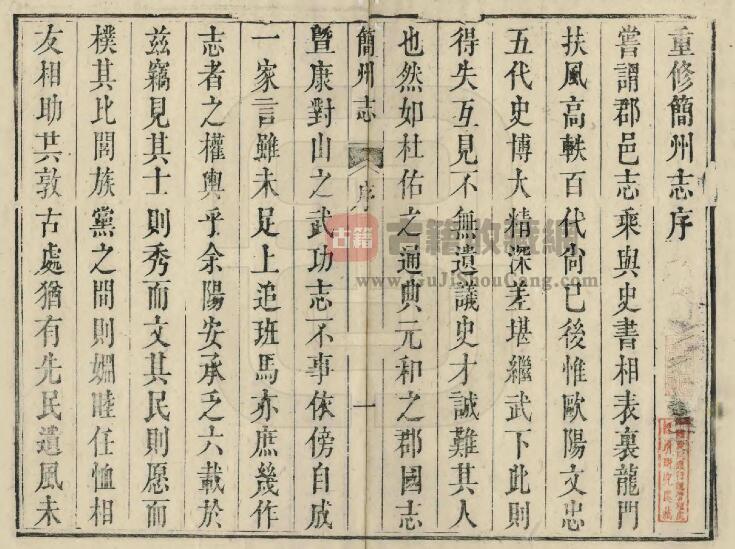 重修簡州志序
嘗謂郡邑志乘與史書相表裏龍門
扶風高軼百代尚已後惟歐陽文忠
五代史博大精深差堪繼武下此則
得失互見不無遺議史才誠難其人
也然如杜佑之通典元和之郡國志
簡州志
序
一
暨康對山之武功志不事依傍自成
一家言雖未足上追班馬亦庶幾作
志者之權輿乎余陽安承乏六載於
茲竊見其士則秀而文其民則愿而
樸其比閭族黨之間則婣睦任恤相
友相助共敦古處猶有先民遺風未
古籍
古籍收藏網
www.GuJiShouCang.com